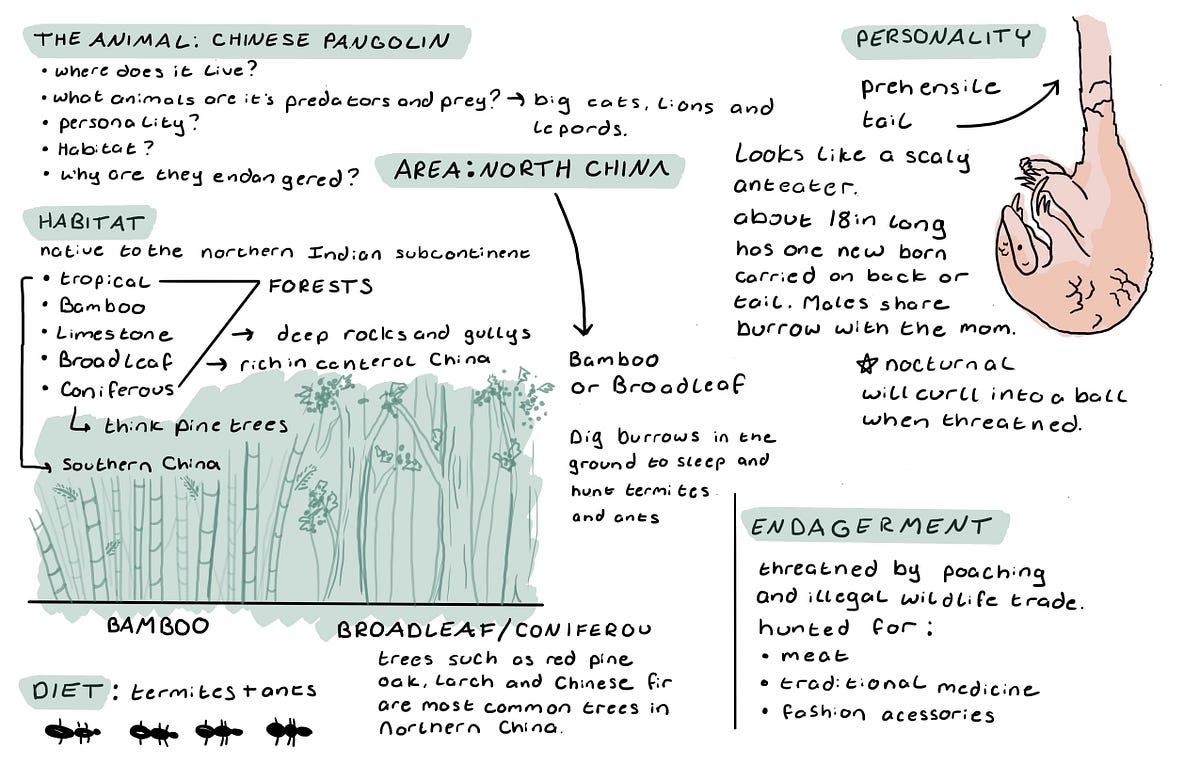 THE ANIMAL: CHINESE PANGOLIN
• where does it live?
• what animals are it's predators and prey? → big cats, lions and
lepords.
• personality?
• Habitat?
• why are they endangered?
AREA: NORTH CHINA
HABITAT
native to the northern Indian subcontinent
• tropical
FORESTS
• Bamboo
• Limestone → deep rocks and gullys
• Broadleaf → rich in canteral China
• Coniferous
↳ think pine trees
→ Southern China
BAMBOO
BROADLEAF/CONIFEROU
trees such as red pine
oak, larch and Chinese fir
are most common trees in
Northern China.
DIET: termites + ants
Bamboo
or Broadleaf
Dig burrows in the
ground to sleep and
hunt termites
and ants
PERSONALITY
prehensile
tail
Looks like a scaly
anteater.
about 18in long
has one new born
carried on back or
tail. Males share
burrow with the mom.
☆ nocturnal
will curll into a ball
when threatned.
ENDAGERMENT
threatned by poaching
and illegal wildlife trade.
hunted for:
• meat
• traditional medicine
• fashion acessories